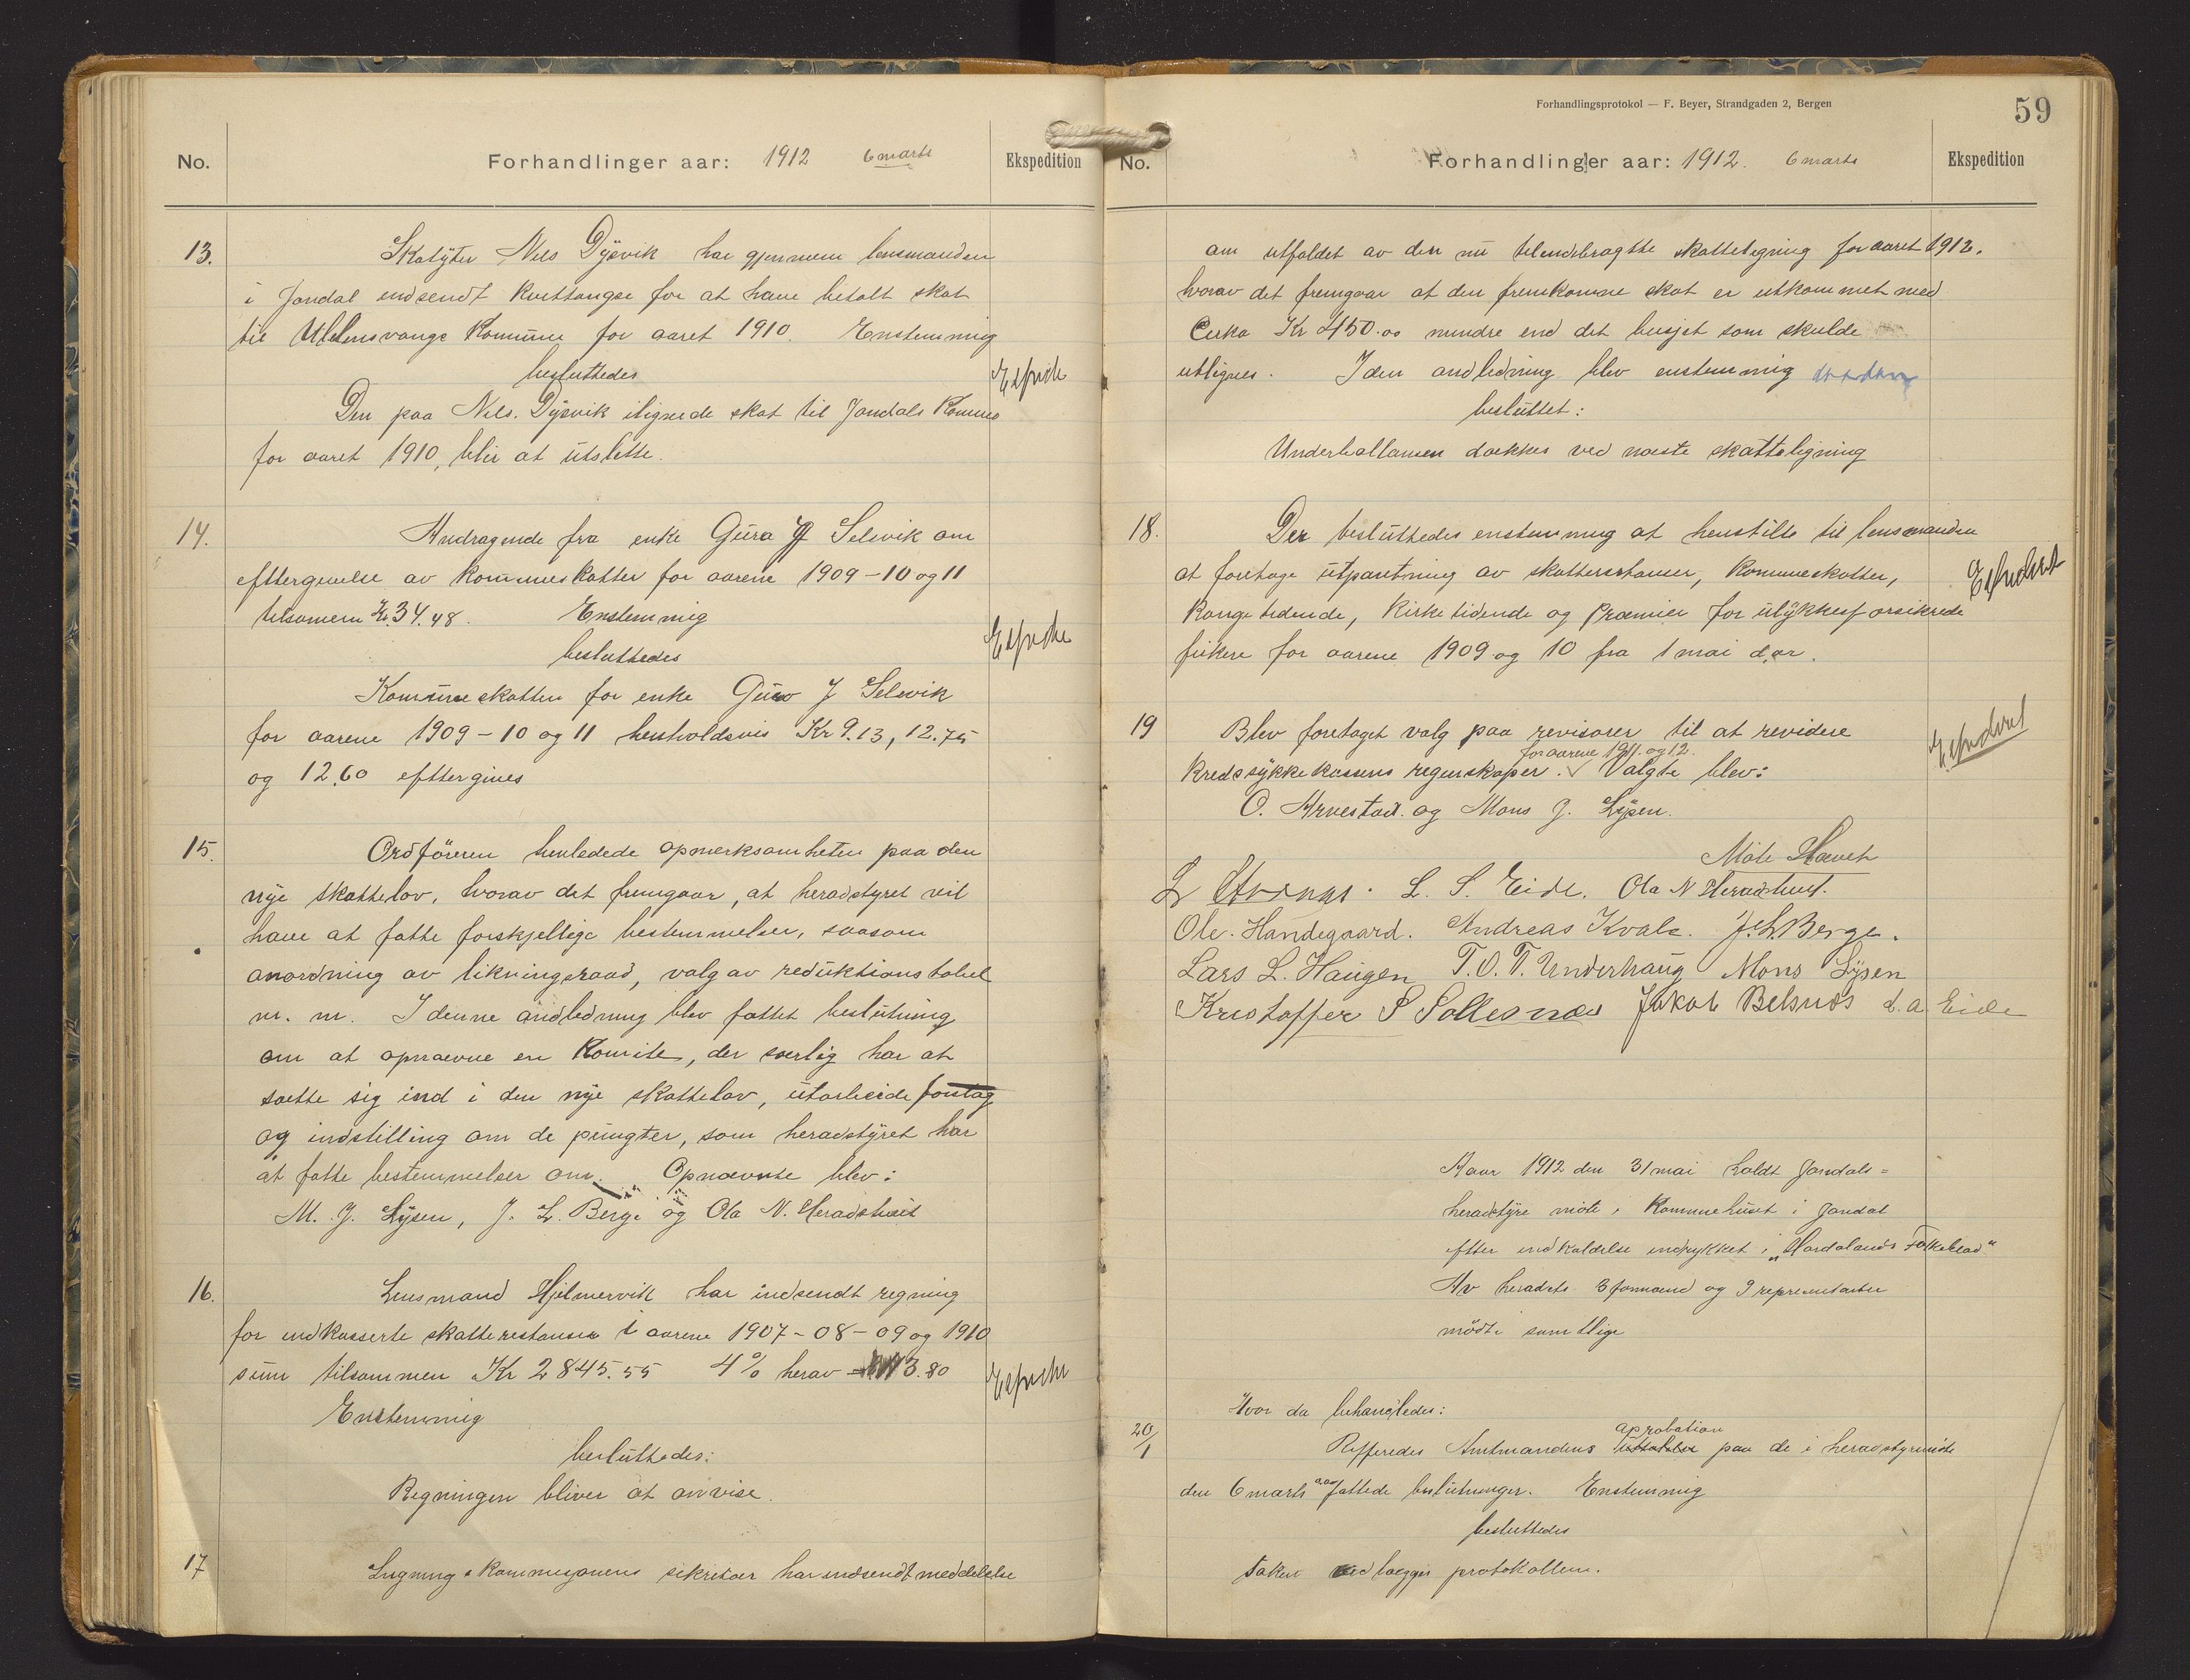 No. Forhandlinger aar: 1912 6 marts Ekspedition
13. Skatyter Nils Dysvik har gjennem lensmanden
i Jondal indsendt kvittangse for at have betalt skat
til Ullensvangs Komune for aaret 1910. Enstemmig
besluttedes
Den paa Nils. Dysvik ilignede skat til Jondals Komune
for aaret 1910, blir at utslette.
14. Andragende fra enke Guro J Selsvik om
eftergivelse av Kommuneskatter for aarene 1909-10 og 11
tilsamen Kr. 34.48. Enstemmig
besluttedes
Komuneskatten for enke Guro J Selsvik
for aarene 1909-10 og 11 henholdsvis Kr 9.13, 12.75
og 12.60 eftergives
15. Ordføreren henledede opmerksomheten paa den
nye skattelov, hvorav det fremgaar, at heradstyret vil
have at fatte forskjellige bestemmelser, saasom
anordning av likningsraad, valg av reduktionstabel
m. m. I denne andledning blev fattet beslutning
om at opnævne en Komite, der særlig har at
sætte sig ind i den nye skattelov, utarbeide forslag
og indstilling om de pungter, som heradstyret har
at fatte bestemmelser om. Opnævnte blev:
M. J. Lysen, J. L. Berge og Ola N. Heradstveit
16. Lensmand Hjelmervik har indsendt regning
for indkasserte skatterestanser i aarene 1907-08-09 og 1910
sum tilsammen Kr 2845.55 4% herav = 113.80
Enstemmig
besluttedes:
Regningen bliver at anvise.
17 Ligningskommisjonens sekretær har indsendt meddelelse
Forhandlingsprotokol — F. Beyer, Strandgaden 2, Bergen
59
No. Forhandlinger aar: 1912. 6 marts Ekspedition
om utfaldet av den nu tilendebragtte skatteligning for aaret 1912.
hvorav det fremgaar at den fremkomne skat er utkommet med
Cirka Kr 450.00 mindre end det busjet som skulde
utlignes. I den andledning blev enstemmig
besluttet:
Underballansen dækkes ved næste skatteligning
18. Der besluttedes enstemmig at henstille til lensmanden
at foretage utpantning av skatterestanser, Komuneskatter,
Kongetidende, Kirketidende og Præmier for ulykkesforsikrede
fiskere for aarene 1909 og 10 fra 1 mai d.ar.
19 Blev foretaget valg paa revisorer til at revidere
for aarene 1911. og 12.
Kredssykkekassens regnskaper. Valgte blev:
O. Arvestad og Mons J. Lysen.
Møte Hævet
L. S. Eide. Ola N Heradstveit.
Ole. Handegaard. Andreas Kvale. J. L. Berge.
Lars L. Haugen T. O. T. Underhaug Mons Lysen
Kristoffer S Sollesnes Jakob Belsnes L. A. Eide
Aar 1912 den 31 mai holdt Jondals=
heradstyre møte i Kommunehuset i Jondal
efter indkaldelse indrykket i „Hordalands Folkeblad"
Av heradets 3 formænd og 9 representanter
mødte samtlige
Hvor da behandledes:
aprobation
20/1 Reffereredes Amtmandens paa de i heradstyremøte
den 6 marts fattede beslutninger. Enstemmig
besluttedes
Saken vedlægges protokollen.